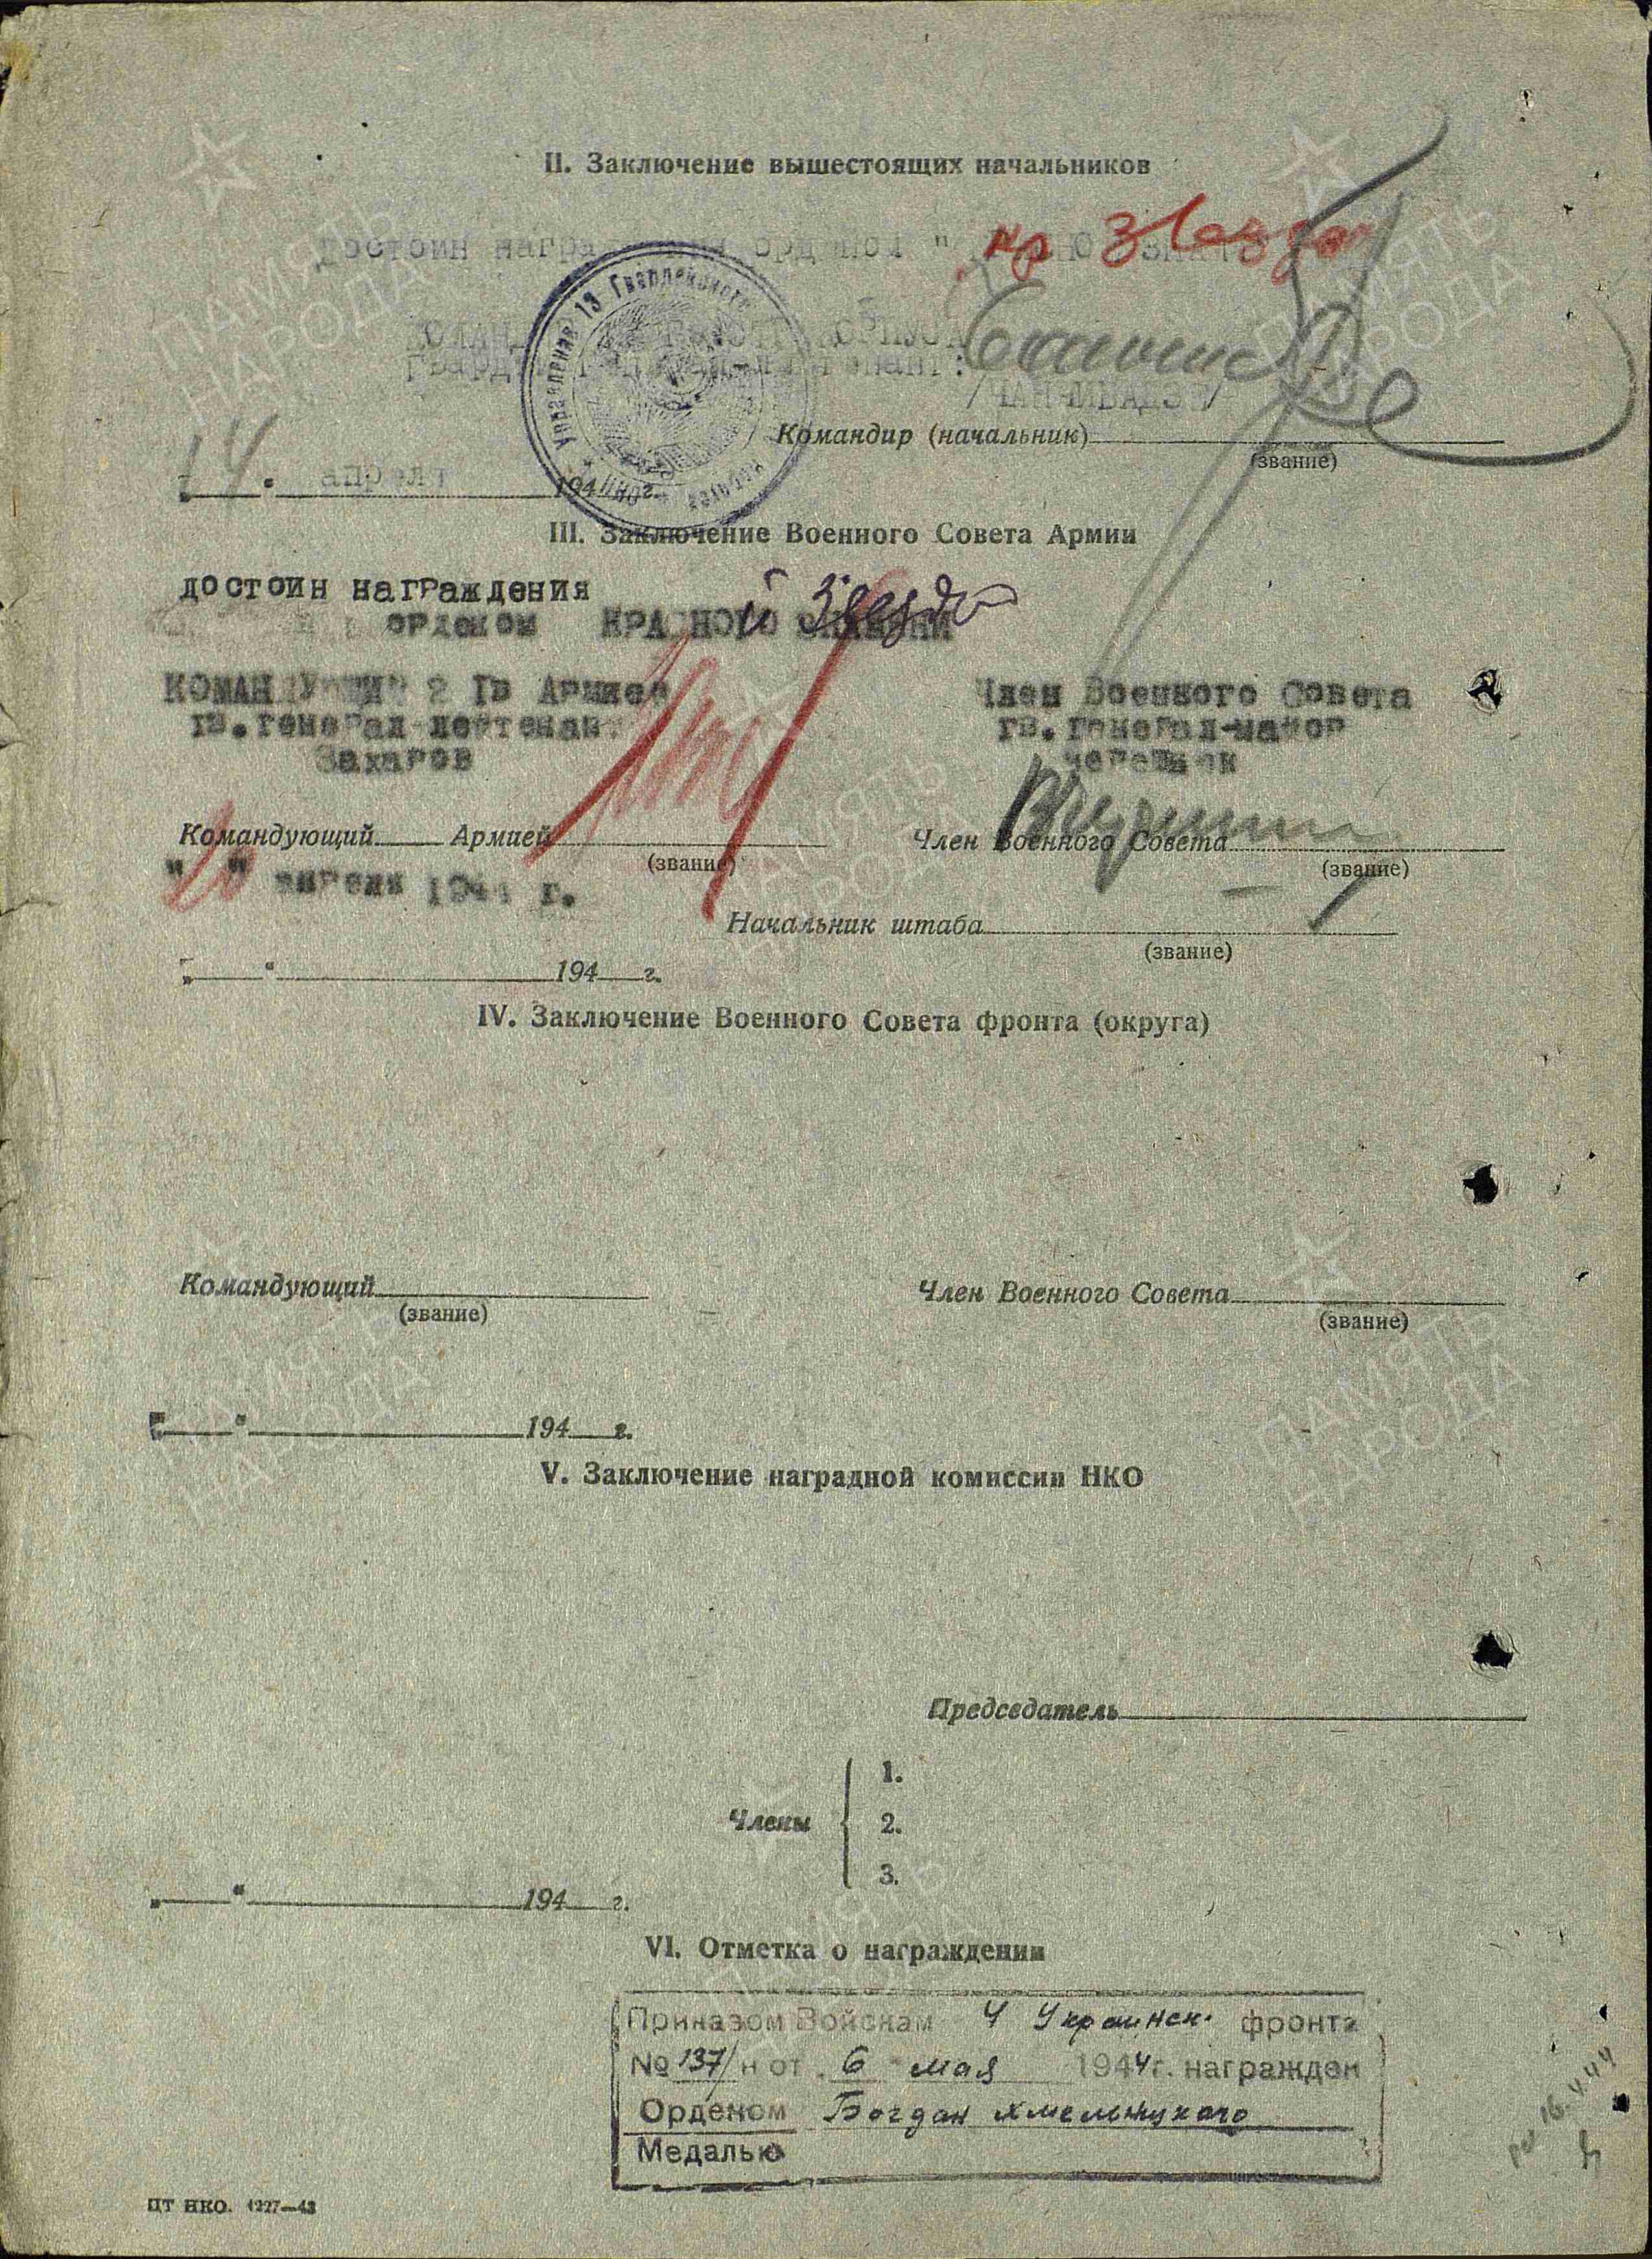 II. Заключение вышестоящих начальников
Достоин награждения орденом "
кр Звезда
гвардии генерал-лейтенант:
/ЧАНЧИБАДЗЕ/
Управление 13 Гвардейского
Командир (начальник)
(звание)
"14" апреля 194 г.
III. Заключение Военного Совета Армии
достоин награждения
орденом КРАСНОЙ Звезды
КОМАНДУЮЩИЙ 2 ГВ АРМИЕЙ
гв.генерал лейтенант
Захаров
Член Военного Совета
гв.генерал-майор
Черешнюк
Командующий Армией
(звание)
Член Военного Совета
(звание)
"20" апреля 1944 г.
Начальник штаба
(звание)
„ “ 194 г.
IV. Заключение Военного Совета фронта (округа)
Командующий
(звание)
Член Военного Совета
(звание)
„ “ 194 г.
V. Заключение наградной комиссии НКО
Председатель
Члены
1.
2.
3.
„ “ 194 г.
VI. Отметка о награждении
Приказом Войскам 4 Украинск. фронта
№ 137/н от 6 мая 1944 г. награжден
Орденом Богдан Хмельницкого
Медалью
ЦТ НКО. 1227—43
ПАМЯТЬ НАРОДА